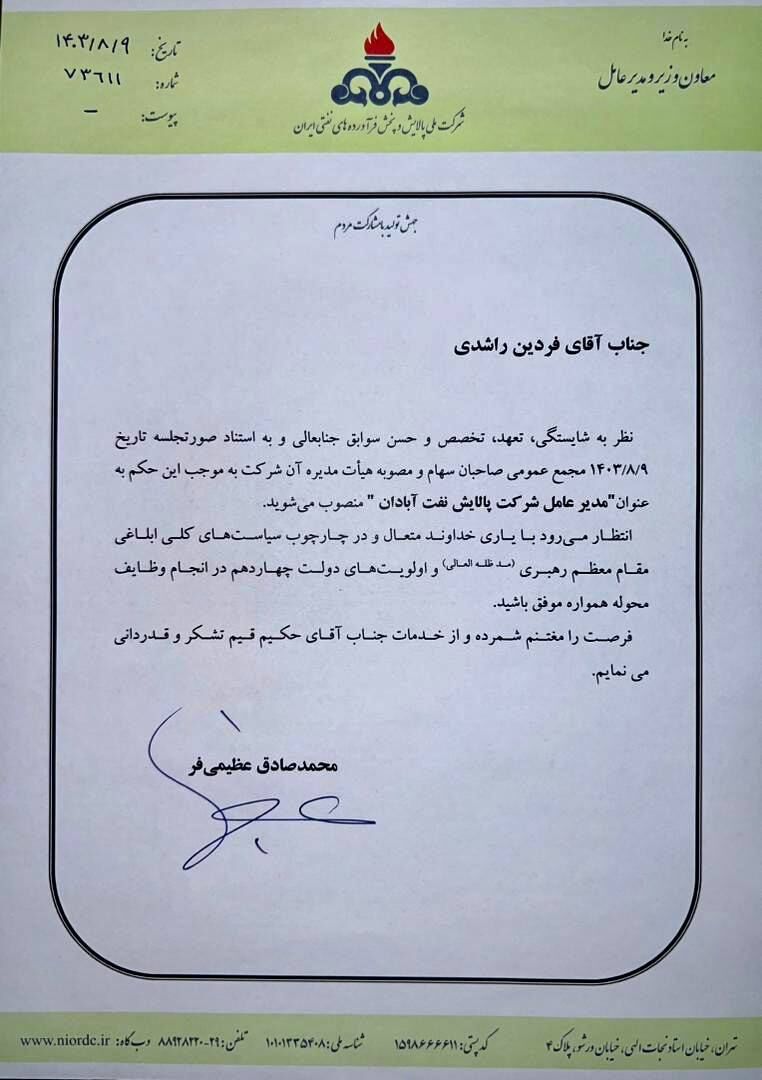 به نام خدا
معاون وزیر و مدیر عامل
شرکت ملی پالایش و پخش فرآورده های نفتی ایران
تاریخ: ۱۴۰۳/۸/۹
شماره: ۷۳۶۱۱
پیوست: –
جهش تولید با مشارکت مردم
جناب آقای فردین راشدی
نظر به شایستگی، تعهد، تخصص و حسن سوابق جنابعالی و به استناد صورتجلسه تاریخ
۱۴۰۳/۸/۹ مجمع عمومی صاحبان سهام و مصوبه هیأت مدیره آن شرکت به موجب این حکم به
عنوان"مدیر عامل شرکت پالایش نفت آبادان " منصوب می‌شوید.
انتظار می‌رود با یاری خداوند متعال و در چارچوب سیاست‌های کلی ابلاغی
مقام معظم رهبری (مد ظله العالی) و اولویت‌های دولت چهاردهم در انجام وظایف
محوله همواره موفق باشید.
فرصت را مغتنم شمرده و از خدمات جناب آقای حکیم قیم تشکر و قدردانی
می نمایم.
محمدصادق عظیمی‌فر
تهران، خیابان استاد نجات الهی، خیابان ورشو، پلاک ۴ کد پستی: ۱۵۹۸۶۶۶۶۱۱ شناسه ملی: ۱۰۱۰۱۳۳۵۴۰۸ تلفن: ۲۹-۸۸۹۲۸۲۲۰ وب گاه: www.niordc.ir